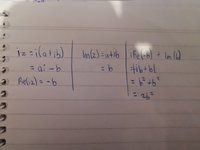 iz = i(a+ib)
= ai - b
Re(iz) = -b
Im(z) = a+ib
= b
Re(-b) + Im(b)
= b² + b²
= 2b²